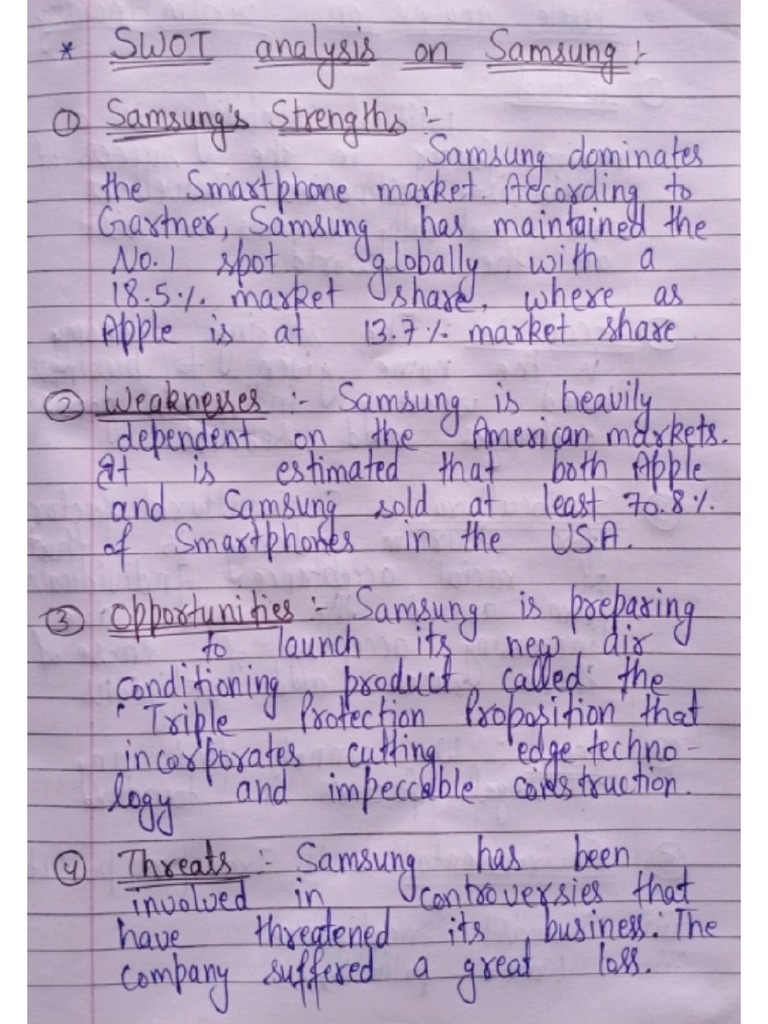 * SWOT analysis on Samsung :-
① Samsung's Strengths :-
Samsung dominates
the Smartphone market. According to
Gartner, Samsung has maintained the
No. 1 spot globally with a
18.5% market share, where as
Apple is at 13.7% market share
② Weaknesses :- Samsung is heavily
dependent on the American markets.
It is estimated that both Apple
and Samsung sold at least 70.8%
of Smartphones in the USA.
③ Opportunities :- Samsung is preparing
to launch its new air
conditioning product called the
"Triple Protection Proposition that
incorporates cutting edge techno-
logy and impeccable construction.
④ Threats :- Samsung has been
involved in controversies that
have threatened its business. The
company suffered a great loss.